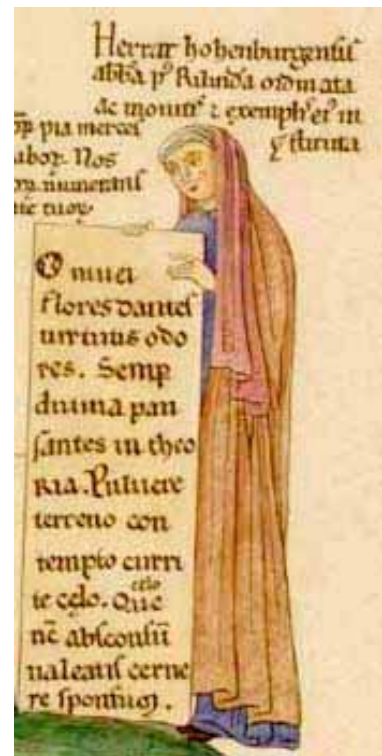 Herrat hohenburgensis
abba p' Rilinda ordinata
ac monit' ⁊ exempl' ei' in
stituta
pia merces
Nos
munerans
O nivei
flores dantes
virtutis odo
res. Semp
divina pau
santes in theo
ria. Pulvere
terreno con
tempto curri
te cęlo. Que
celo
nc̄ absconsū
valeatis cerne
re sponsum.